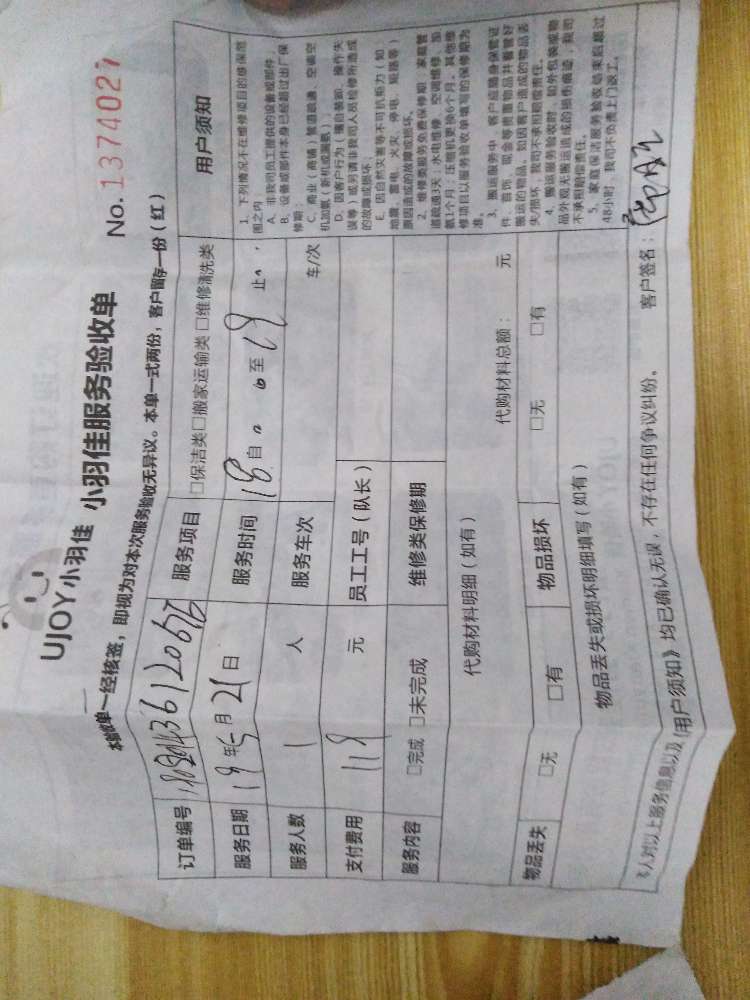 UJOY小羽佳 小羽佳服务验收单
No. 1374027
本验收单一经核签，即视为对本次服务验收无异议。本单一式两份，客户留存一份（红）
订单编号
服务项目 □保洁类□搬家运输类 □维修清洗类
服务日期 19年5月21日
服务时间 18 自 至 19 止
服务人数 1 人
服务车次 车/次
支付费用 119 元
员工工号（队长）
服务内容 □完成 □未完成
维修类保修期
代购材料明细（如有） 代购材料总额： 元
物品丢失 □无 □有
物品损坏 □无 □有
物品丢失或损坏明细填写（如有）
用户须知
1. 下列情况不在维修项目的修保范
围之内：
A. 非我司员工提供的设备或部件
B. 设备或部件本身已经超过出厂保
修期；
C. 商业（商铺）管道疏通、空调空
机加氨（新机或漏氨）；
D. 因客户行为（擅自装卸、操作失
误等）或另请非我司人员检修所造成
的故障或损坏；
E. 因自然灾害等不可抗拒力（如
地震、雷电、火灾、停电、短路等）
原因造成的故障或损坏。
2. 维修类服务免费保修期：家庭管
道疏通3天；水电维修、空调维修、加
氨1个月；压缩机更换6个月。其他维
修项目以服务验收单填写的保修期为
准。
3. 搬运服务中，客户应随身保管证
件、首饰、现金等贵重物品并看管好
搬运的物品。如因客户造成的物品丢
失/损坏，我司不承担赔偿责任。
4. 搬运服务验收时，除外包装或物
品外观无搬运造成的损伤痕迹，我司
不承担赔偿责任。
5. 家庭保洁服务验收结束后超过
48小时，我司不负责上门返工。
人对以上服务信息以及《用户须知》均已确认无误，不存在任何争议纠纷。 客户签名：